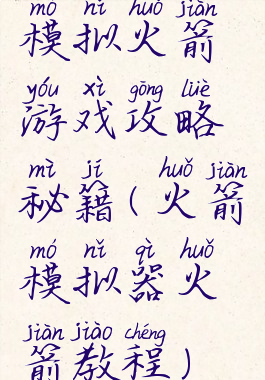 mó nǐ huǒ jiàn
模拟火箭
yóu xì gōng lüè
游戏攻略
mì jí huǒ jiàn
秘籍(火箭
mó nǐ qì huǒ
模拟器火
jiàn jiào chéng
箭教程)